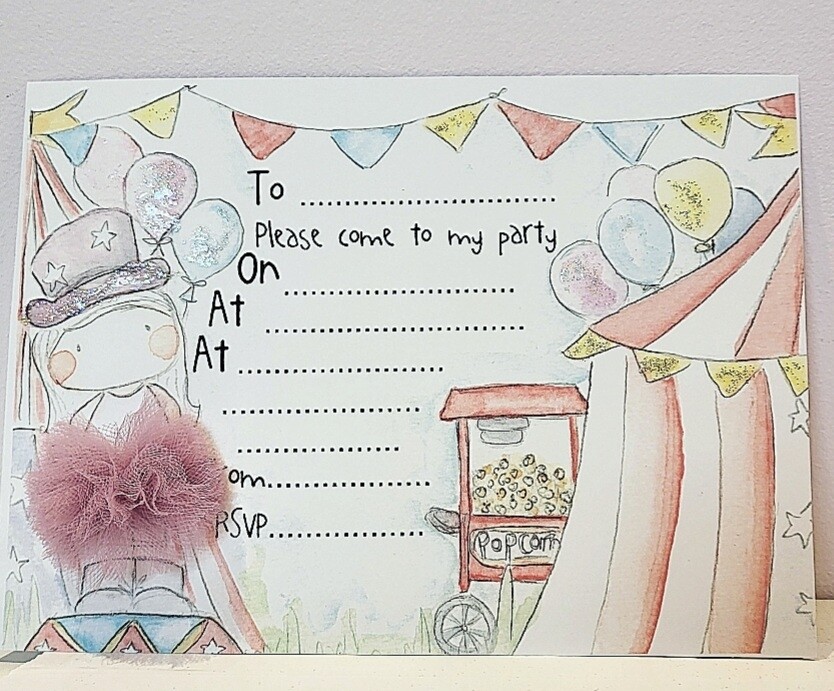 To ..............................
Please come to my party
On ..............................
At ..............................
At ..............................
..............................
..............................
om..............................
RSVP..............................
Popcorn